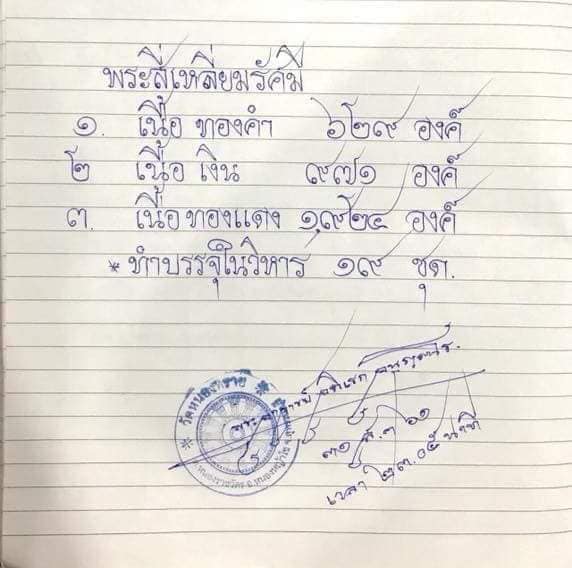 พระสี่เหลี่ยมรัศมี
๑. เนื้อ ทองคำ ๖๒๙ องค์
๒ เนื้อ เงิน ๙๗๑ องค์
๓. เนื้อทองแดง ๑,๙๒๔ องค์
* ทำบรรจุในวิหาร ๑๙ ชุด.
พระอาจารย์
๓๑ ส.ค ๖๑
เวลา ๒๓.๐๕ นาที